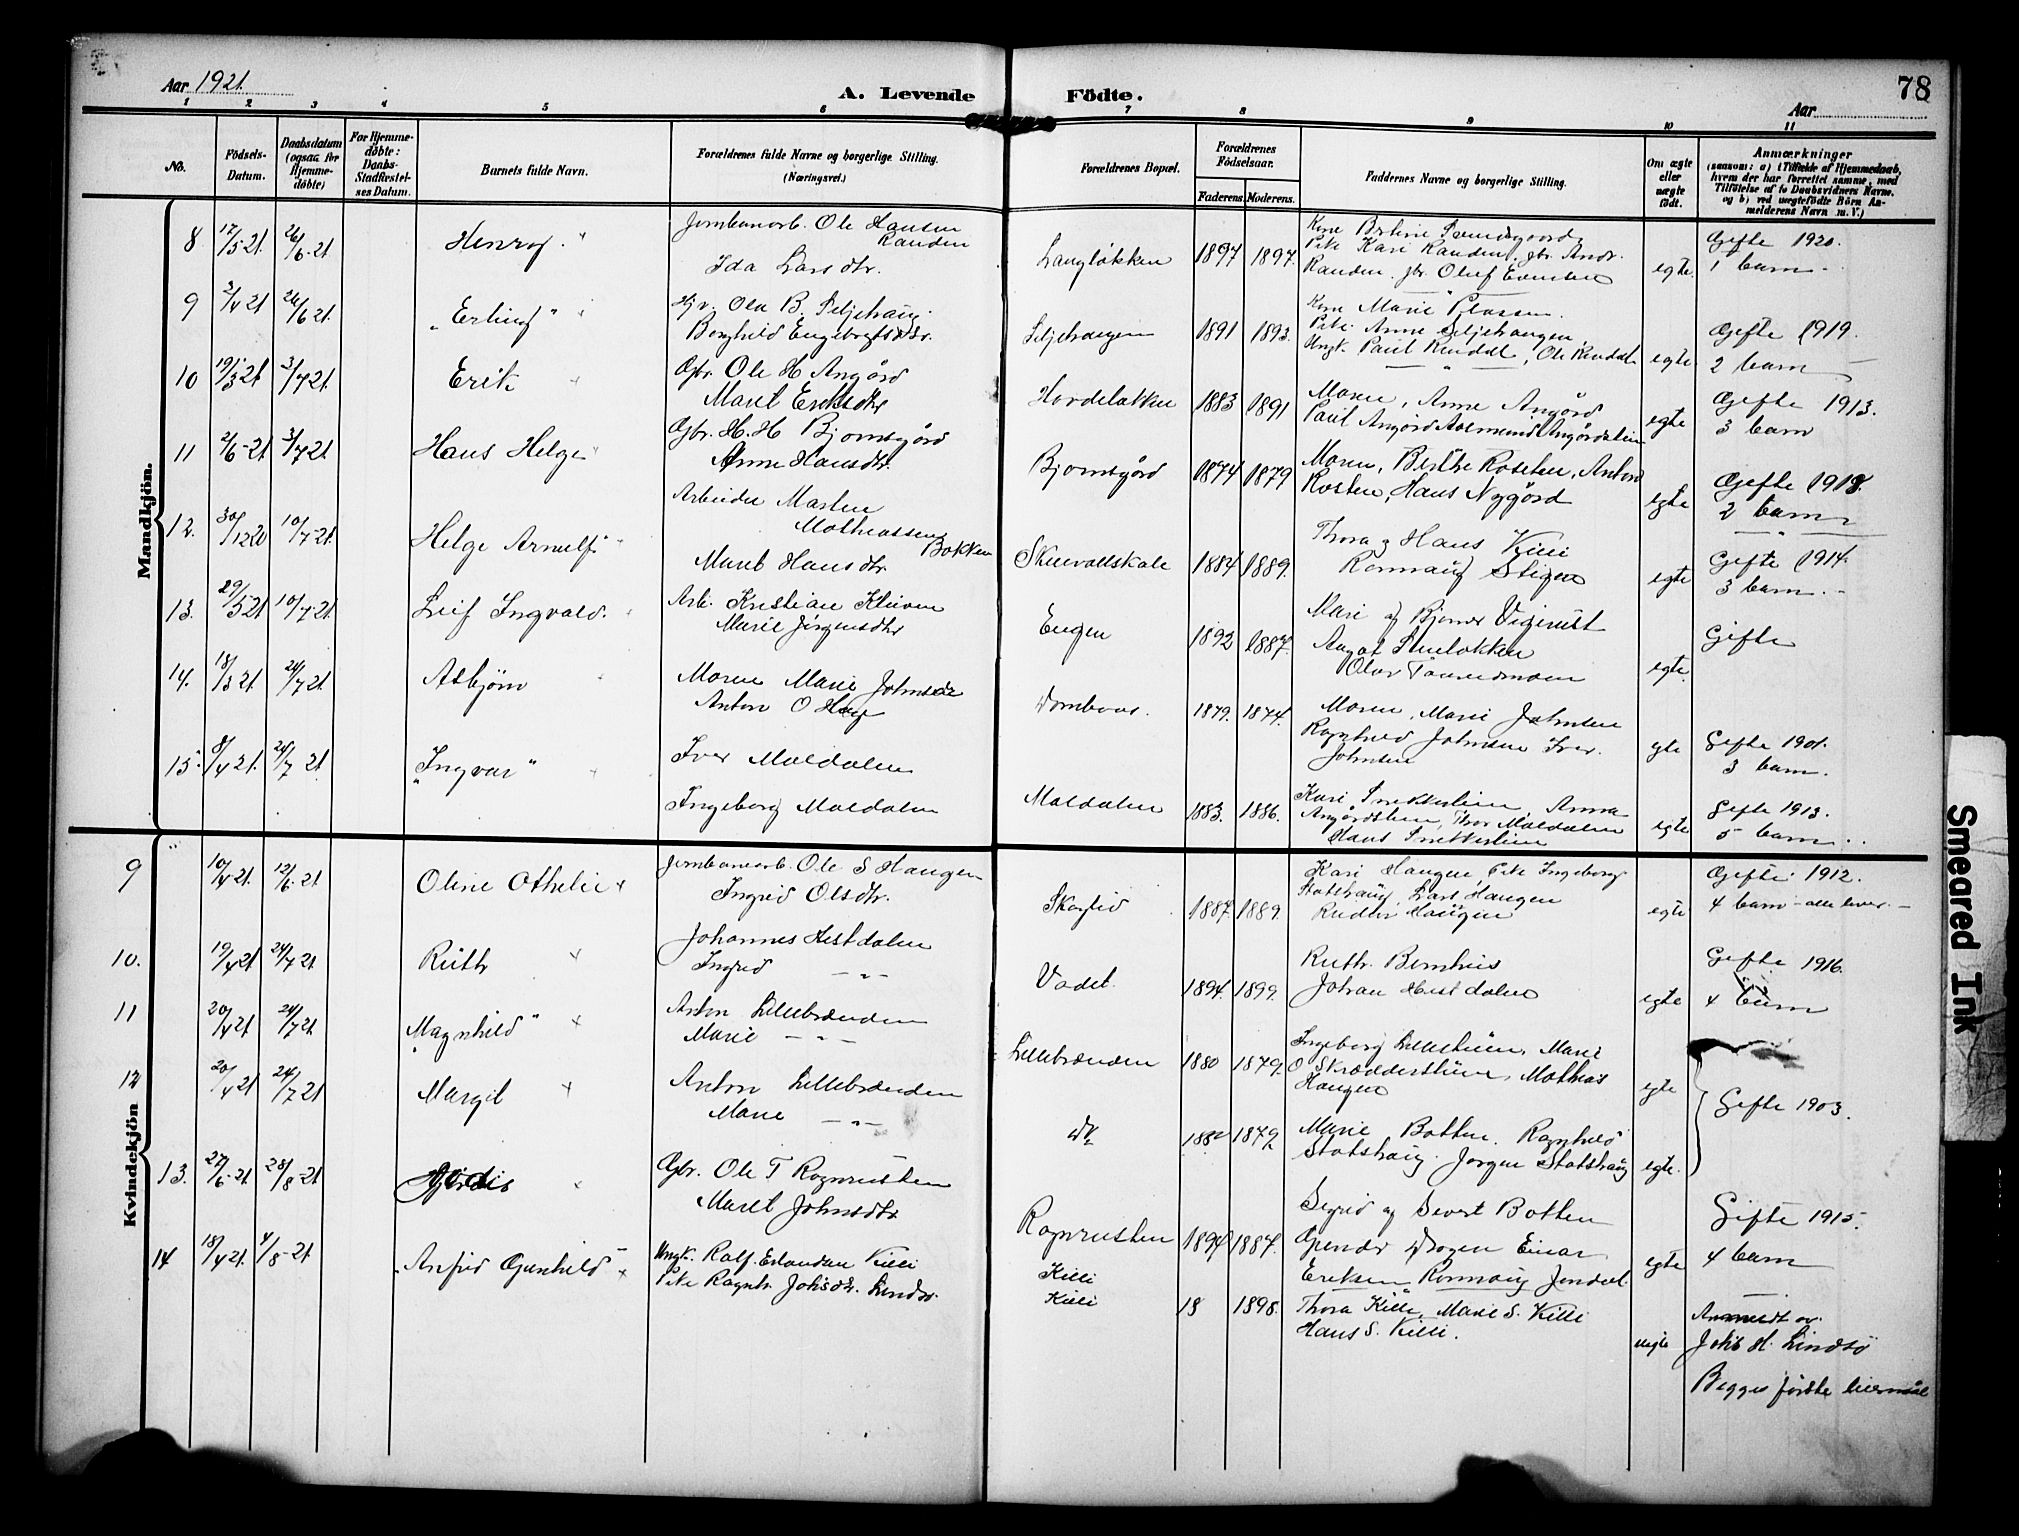 78
Aar 1921.
A. Levende Födte.
Aar
1 2 3 4 5 6 7 8 9 10 11
No.
Födsels-Datum.
Daabsdatum (ogsaa for Hjemme-döbte)
For Hjemme-döbte: Daabs-Stadfæstel-ses Datum.
Barnets fulde Navn.
Forældrenes fulde Navne og borgerlige Stilling.
(Næringsvei.)
Forældrenes Bopæl.
Forældrenes Födselsaar.
Faderens. Moderens.
Faddernes Navne og borgerlige Stilling.
Om ægte eller uægte födt.
Anmærkninger
(saasom: a) i Tilfælde af Hjemmedaab, hvem der har forrettet samme, med Tilföielse af to Daabsvidners Navne, og b) ved uægtefödte Börn Anmelderens Navn m. V.)
Mandkjön.
8 17/5 21. 26/6-21 Henry Jernbanearb. Ole Hansen Randen
Ida Larsdtr.
Langløkken 1897 1897.
Pike Kari Randen, gbr. Andr. Randen, gbr. Oluf Evensen
egte. Gifte 1920.
1 barn.
9 2/4 21 26/6 21. "Erling" Ola B. Seljehaug.
Borghild Engebregtsdtr.
Seljehaugen 1891 1893.
Kone Marie Plassen.
Pike Anne Seljehaugen,
Ungk. Paul Rendal, Ole Rendal
egte Gifte 1919.
2 barn
10 19/3 21 3/7 21. Erik Gbr. Ole H Angård
Marit Eriksdtr
Hordeløkken 1883 1891
Moren, Anne Angård
Paul Angård Aasmund Angårdslien
egte Gifte 1913.
3 barn
11 2/6-21 3/7 21. Hans Helge Gbr. H. H Bjørnsgård
Anne Hansdtr.
Bjørnsgård 1874 1879
Moren, Berthe Rosten, Anton Rosten, Hans Nygård
egte Gifte 1918.
2 barn
12. 30/12 20 10/7-21. Helge Arnulf Arbeider Morten
Mathiassen Bakken
Marit Hansdtr
Skuevollskale 1884 1889.
Thora og Hans Killi
Rønnaug Stigen
egte Gifte 1914.
3 barn.
13. 29/5 21 10/7-21. Leif Ingvald. Arb. Kristian Kleiven
Marie Jørgensdtr
Engen 1892 1887.
Mari og Bjørner Vigerust
Aagot Stueløkken
Olav Tøndemoen
egte. Gifte
14. 18/3 21. 24/7 21. Asbjørn Moren Marie Johnsdr
Anton O Hage
Dombaas. 1879. 1874.
Moren, Marie Johnsen
Ragnhild Johnsen Iver Johnsen
gte Gifte 1901.
3 barn.
15. 8/4 21. 24/7 21. "Ingvar" Iver Moldalen
Ingeborg Moldalen
Moldalen 1883. 1886.
Kari, Anna
Angårdslien, Thor Moldalen
Hans
egte Gifte 1913.
5 barn..
Kvindekjön
9 10/4 21. 12/6-21 Oline Othelie Jernbanearb. Ole S Haugen
Ingrid Olsdtr.
Skoglid 1887. 1889.
Kari Haugen, Pike Ingeborg
Stotshaug, Lars Haugen
Haugen
egte Gifte 1912.
4 barn - alle lever.
10. 19/4 21 24/7 21. Ruth Johannes Hestdalen
Ingrid —"—
Vadet. 1894. 1899.
Ruth
Johan Hestdalen
egte Gifte 1916.
4 barn
11 20/4 21 24/7 21. "Magnhild" Anton Lillebrænden
Marie —"—
Lillebrænden 1880 1879.
Ingeborg, Marie
O, Mathias
Haugen
egte
Gifte 1903.
12 20/4 21 24/7 21 Margit Anton Lillebrænden
Marie —"—
Do 1880 1879
Marie Botten. Ragnhild
Stotshaug. Jørgen Stotshaug
egte.
13. 27/6-21 28/8-21 Hjørdis Gbr. Ole T Ragnrusten
Marit Johnsdtr.
Ragnrusten 1894 1887.
Sigrid og Sivert Botten
Einar
Eriksen Rønnaug Jøndal
egte Gifte 1915.
4 barn
14 18/4 21. 4/8-21 Anfrid Gunhild Ungk. Ralf Erlandsen Killi
Pike Ragnh. Johsdtr. Lindsø.
Killi
Killi 18 1898.
Thora Killi, Marie S. Killi
Hans S. Killi.
uegte Anmeldt av.
Johs H. Lindsø
Begges første leiermål
Smeared Ink